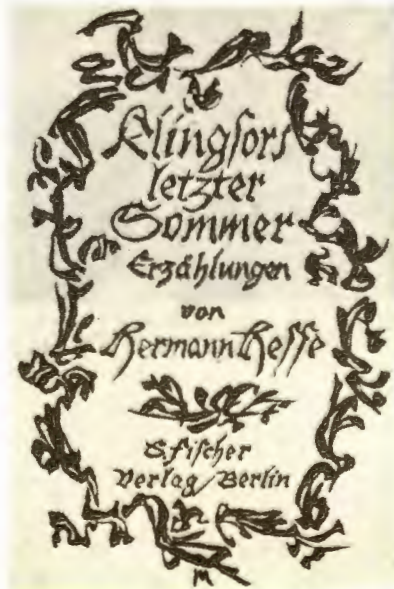 Klingsors
letzter
Sommer
Erzählungen
von
Hermann Hesse
S. Fischer
Verlag / Berlin
M